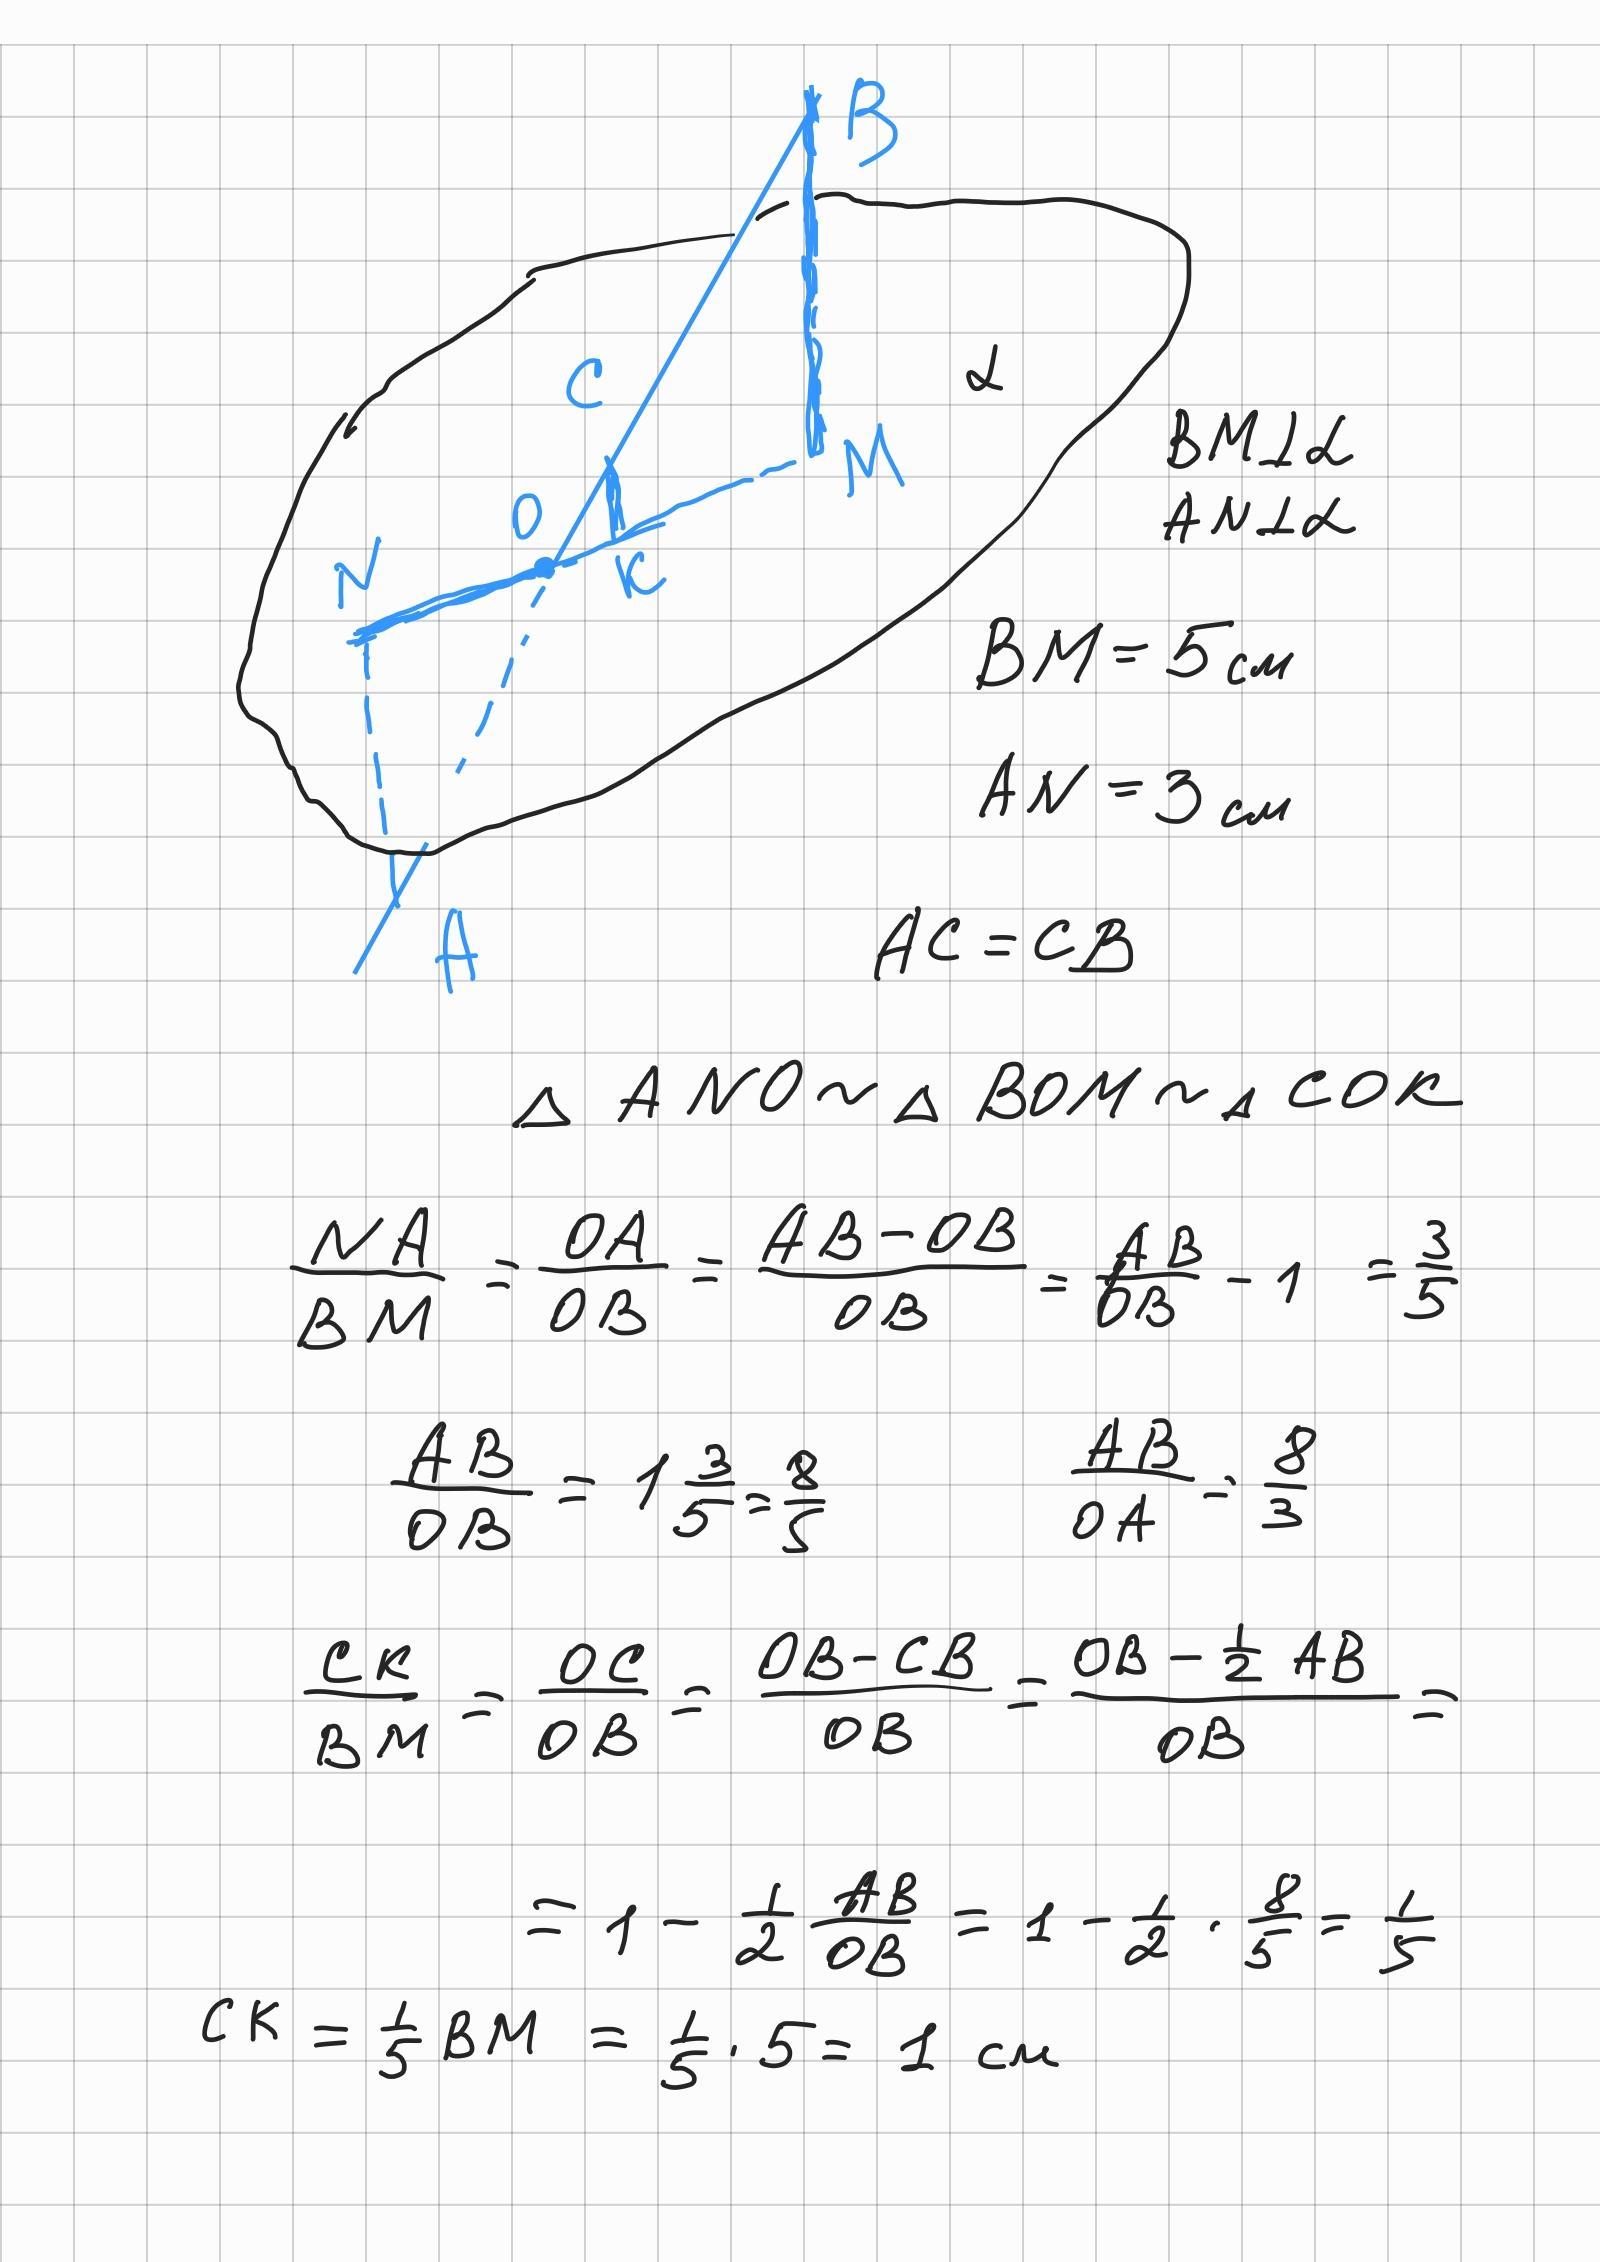 B
C
α
M
BM⊥α
O
AN⊥α
N
K
BM = 5 см
AN = 3 см
A
AC = CB
△ ANO ~ △ BOM ~ △ COK
NA/BM = OA/OB = (AB - OB)/OB = AB/OB - 1 = 3/5
AB/OB = 1 3/5 = 8/5 AB/OA = 8/3
CK/BM = OC/OB = (OB - CB)/OB = (OB - 1/2 AB)/OB =
= 1 - 1/2 AB/OB = 1 - 1/2 · 8/5 = 1/5
CK = 1/5 BM = 1/5 · 5 = 1 см